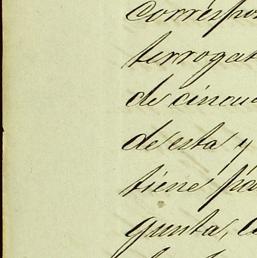 correspon
terrogat
de cincue
de esta y
tiene pa
gunta,